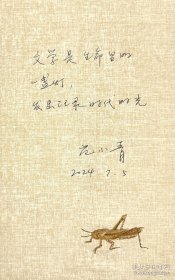 文学是生命里的
一盏灯,
发显记录时代的光
范小青
2024.7.5